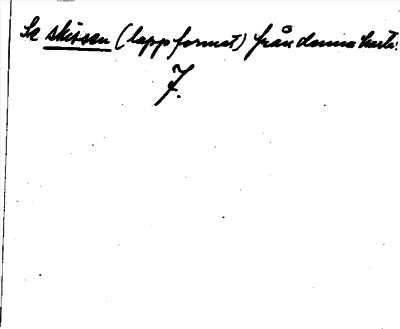 Se skissen (lappformat) från denna
7.